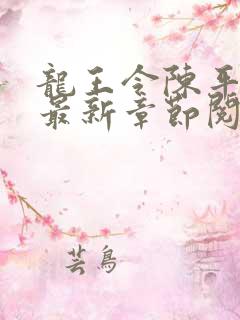 龍王令陳平
最新章節閱
芸鳥